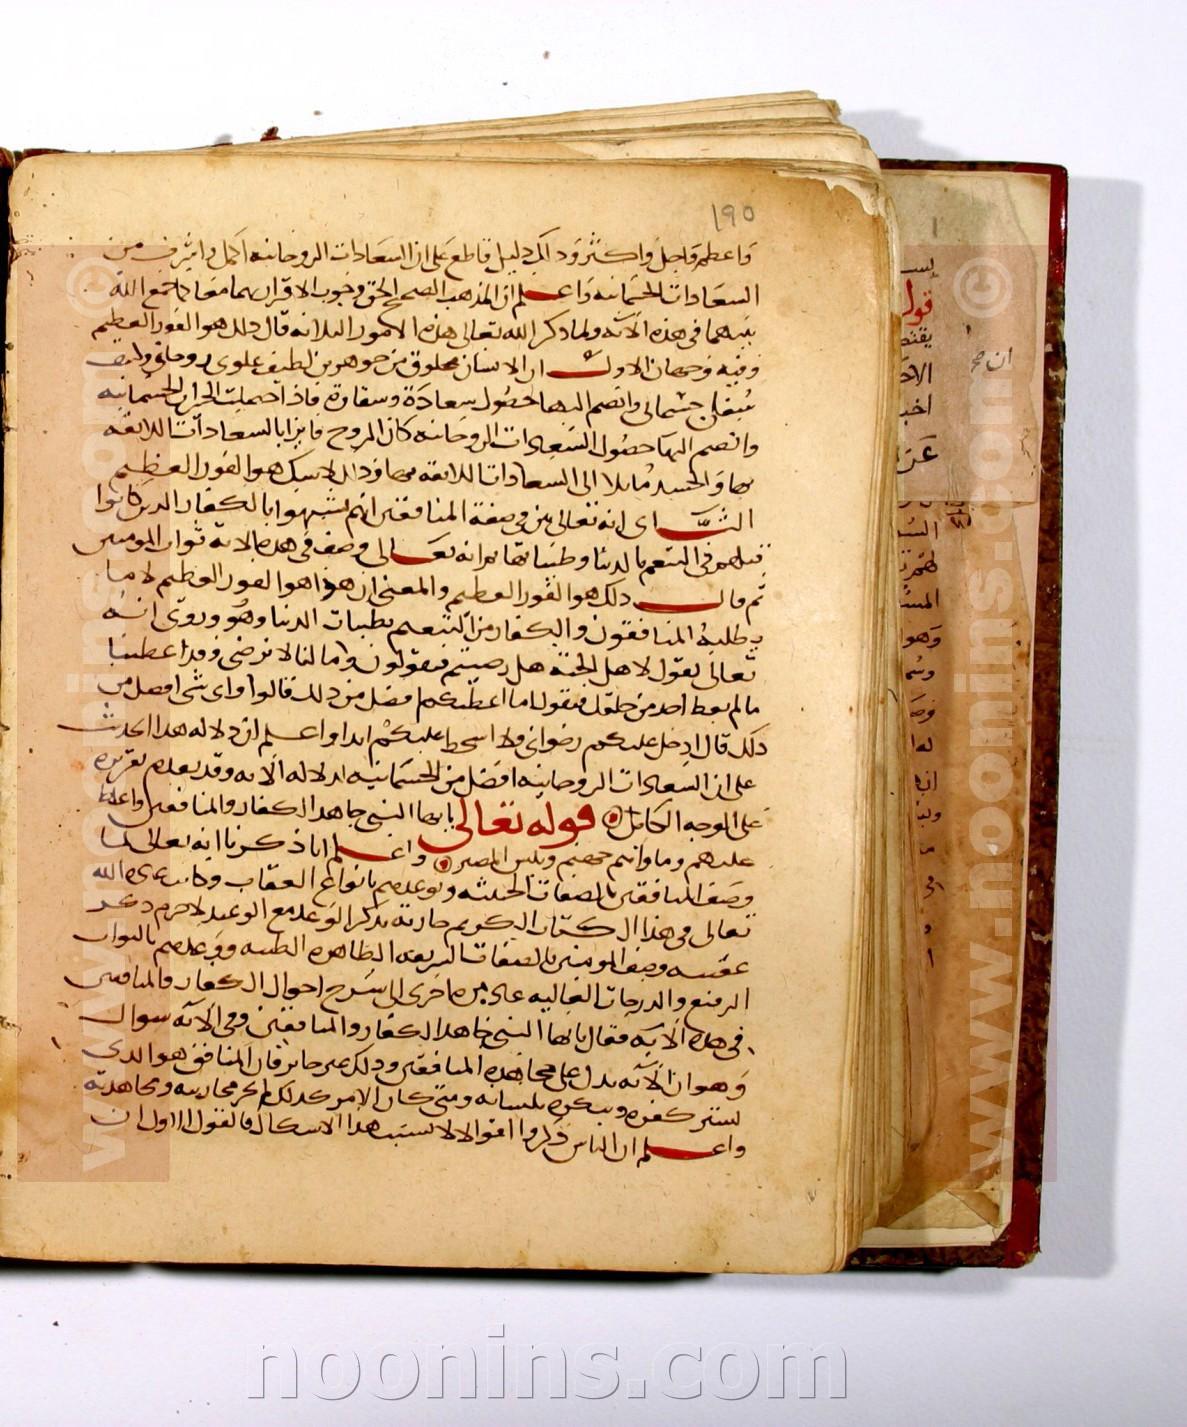 ١٩٥
واعظم واجل واكثر وذلك دليل قاطع على ان السعادات الروحانيه اكمل واشرف من
السعادات الجسمانيه واعلم ان المذهب الصحيح الحق وجوب الاقرار بهما معا كما جمع الله
بينهما في هذه الآيه ولما ذكر الله تعالى هذه الامور الثلاثه قال ذلك هو الفوز العظيم
وفيه وجهان الاول ان الانسان مخلوق من جوهرين لطيف علوى روحاني وكثيف
سفلى جسمانى وانضم اليهما حصول سعادة وشقاوة فاذا حصلت الخيرات الجسمانيه
وانضم اليها حصول السعادات الروحانيه كان الروح فايزا بالسعادات اللايقه
بها والجسد مايلا الى السعادات اللايقه بها وذلك لا شك هو الفوز العظيم
الثـانى انه تعالى بين في صفة المنافقين انهم تشبهوا بالكفار الذين كانوا
قبلهم في التنعم بالدنيا وطيباتها ثم انه تعـالى وصف في هذه الآيه ثواب المومنين
ثم قال ذلك هو الفوز العظيم والمعنى ان هذا هو الفوز العظيم لا ما
يطلبه المنافقون والكفار من التنعم بطيبات الدنيا وهو وروى انه
تعالى يقول لاهل الجنة هل رضيتم فيقولون وما لنا لا نرضى وقد اعطيتنا
ما لم يعط احد من خلقك فيقول اما اعطيكم افضل من ذلك قالوا واى شى افضل من
ذلك قال ادخل عليكم رضوانى فلا اسخط عليكم ابدا واعـلم ان دلاله هذا الحديث
على ان السعادات الروحانيه افضل من الجسمانيه كدلالة الآيه وقد تقدم تقريره
على الوجه الكامل قوله تعالى يايها النبى جاهد الكفار والمنافقين واغلظ
عليهم وماواهم جهنم وبئس المصير واعـلم انا ذكرنا انه تعالى لما
وصف المنافقين بالصفات الخبيثه وتوعدهم بانواع العقاب وكانت عادة الله
تعالى في هذا الكتاب الكريم جاريه بذكر الوعد مع الوعيد لا جرم ذكر
عقيبه وصف المومنين بالصفات الشريفه الطاهره الطيبه ووعدهم بالثواب
الرفيع والدرجات العاليه عاد مره اخرى الى شرح احوال الكفار والمنافقين
في هذه الآيه فقال يايها النبى جاهد الكفار والمنافقين وفي الآيه سوال
وهو ان الآيه تدل على مجاهدة المنافقين وذلك غير جايز فان المنافق هو الذى
يستر كفره وينكره بلسانه ومتى كان الامر كذلك لم يجز محاربته ومجاهدته
واعـلم ان الناس ذكروا اقوالا لا بسبب هذا الاشكال فالقول الاول ان
قول
الاد
عن
ان صح
www.noonins.com ©
www.noonins.com ©
noonins.com